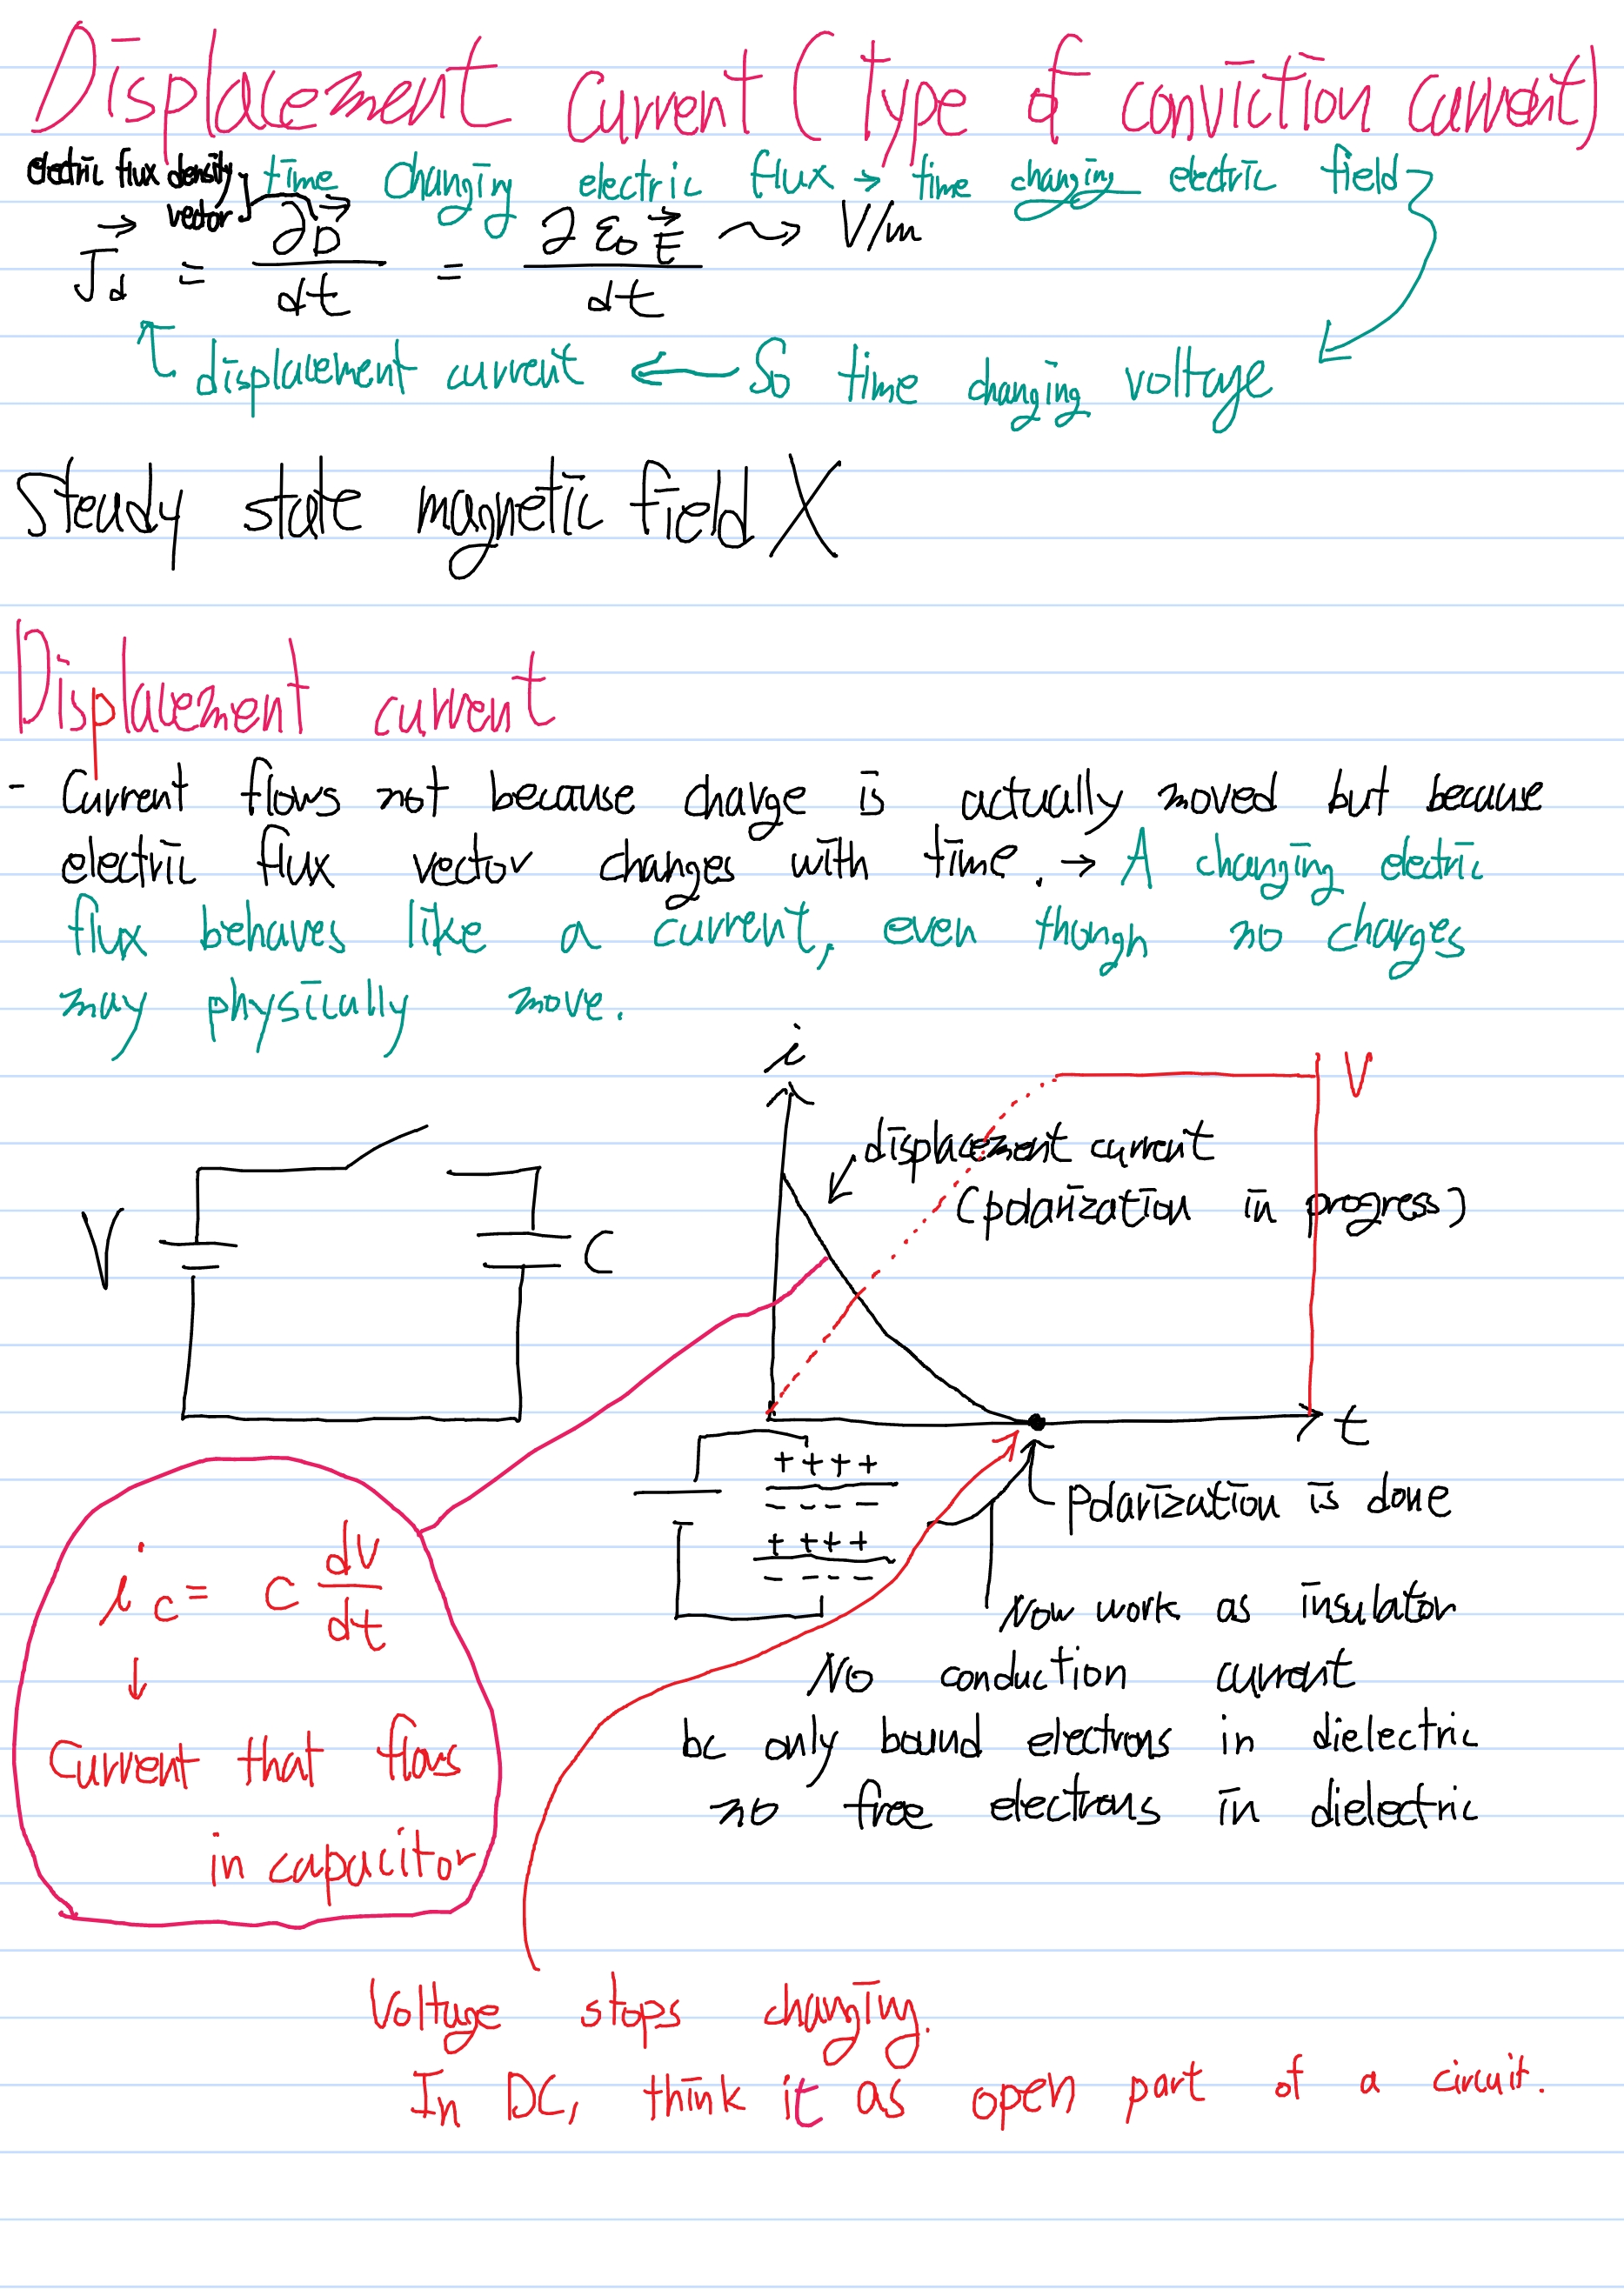 Displacement Current (Type of conviction current)
electric flux density vector
time changing electric flux → time changing electric field
J⃗d = ∂D⃗/dt = ∂ε₀E⃗/dt ⇝ V/m
displacement current ← So time changing voltage
Steady state magnetic field X
Displacement current
- Current flows not because charge is actually moved but because
electric flux vector changes with time. → A changing electric
flux behaves like a current, even though no charges
may physically move.
i
V
displacement current
(polarization in progress)
V
C
t
+ + + +
- - - -
+ + + +
- - - -
Polarization is done
i c = c dV/dt
↓
Current that flows
in capacitor
Now work as insulator
No conduction current
bc only bound electrons in dielectric
no free electrons in dielectric
Voltage stops changing.
In DC, think it as open part of a circuit.